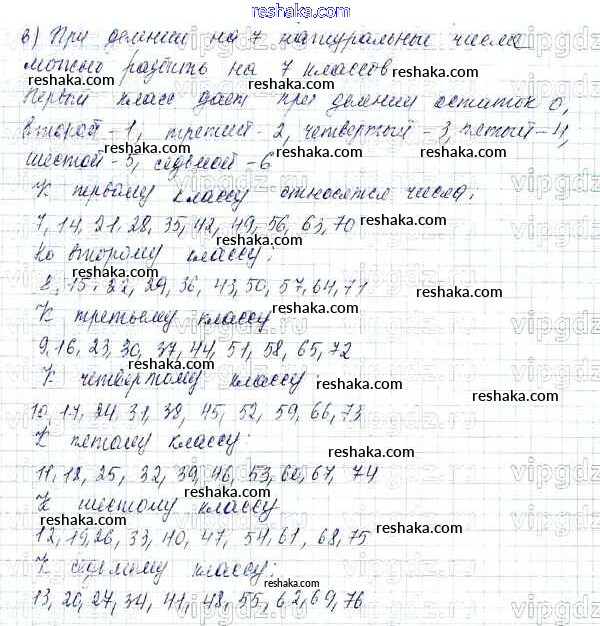 reshaka.com
в) При делении на 7 натуральные числа
можно разбить на 7 классов
reshaka.com
Первый класс дает при делении остаток 0,
второй - 1, третий - 2, четвертый - 3, пятый - 4,
шестой - 5, седьмой - 6
reshaka.com
К первому классу относятся числа:
7, 14, 21, 28, 35, 42, 49, 56, 63, 70 reshaka.com
reshaka.com
Ко второму классу:
reshaka.com
8, 15, 22, 29, 36, 43, 50, 57, 64, 71
reshaka.com
К третьему классу
reshaka.com
9, 16, 23, 30, 37, 44, 51, 58, 65, 72
reshaka.com
К четвертому классу:
reshaka.com
10, 17, 24, 31, 38, 45, 52, 59, 66, 73
reshaka.com
К пятому классу:
reshaka.com
11, 18, 25, 32, 39, 46, 53, 60, 67, 74
reshaka.com
К шестому классу
reshaka.com
12, 19, 26, 33, 40, 47, 54, 61, 68, 75
reshaka.com
К седьмому классу:
reshaka.com
13, 20, 27, 34, 41, 48, 55, 62, 69, 76
reshaka.com
vipgdz.ru